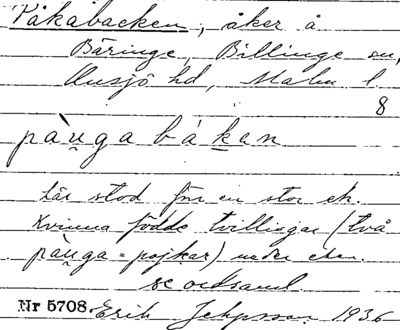 Påkabacken, åker å
Bäringe, Billinge sn,
Onsjö hd, Malm. l.
8
pàu̯ga bàkan
här stod förr en stor ek.
Kvinna födde tvillingar (två
pàu̯ga = pojkar) under eken.
se ordsaml.
Nr 5708 Erik Jeppsson 1936